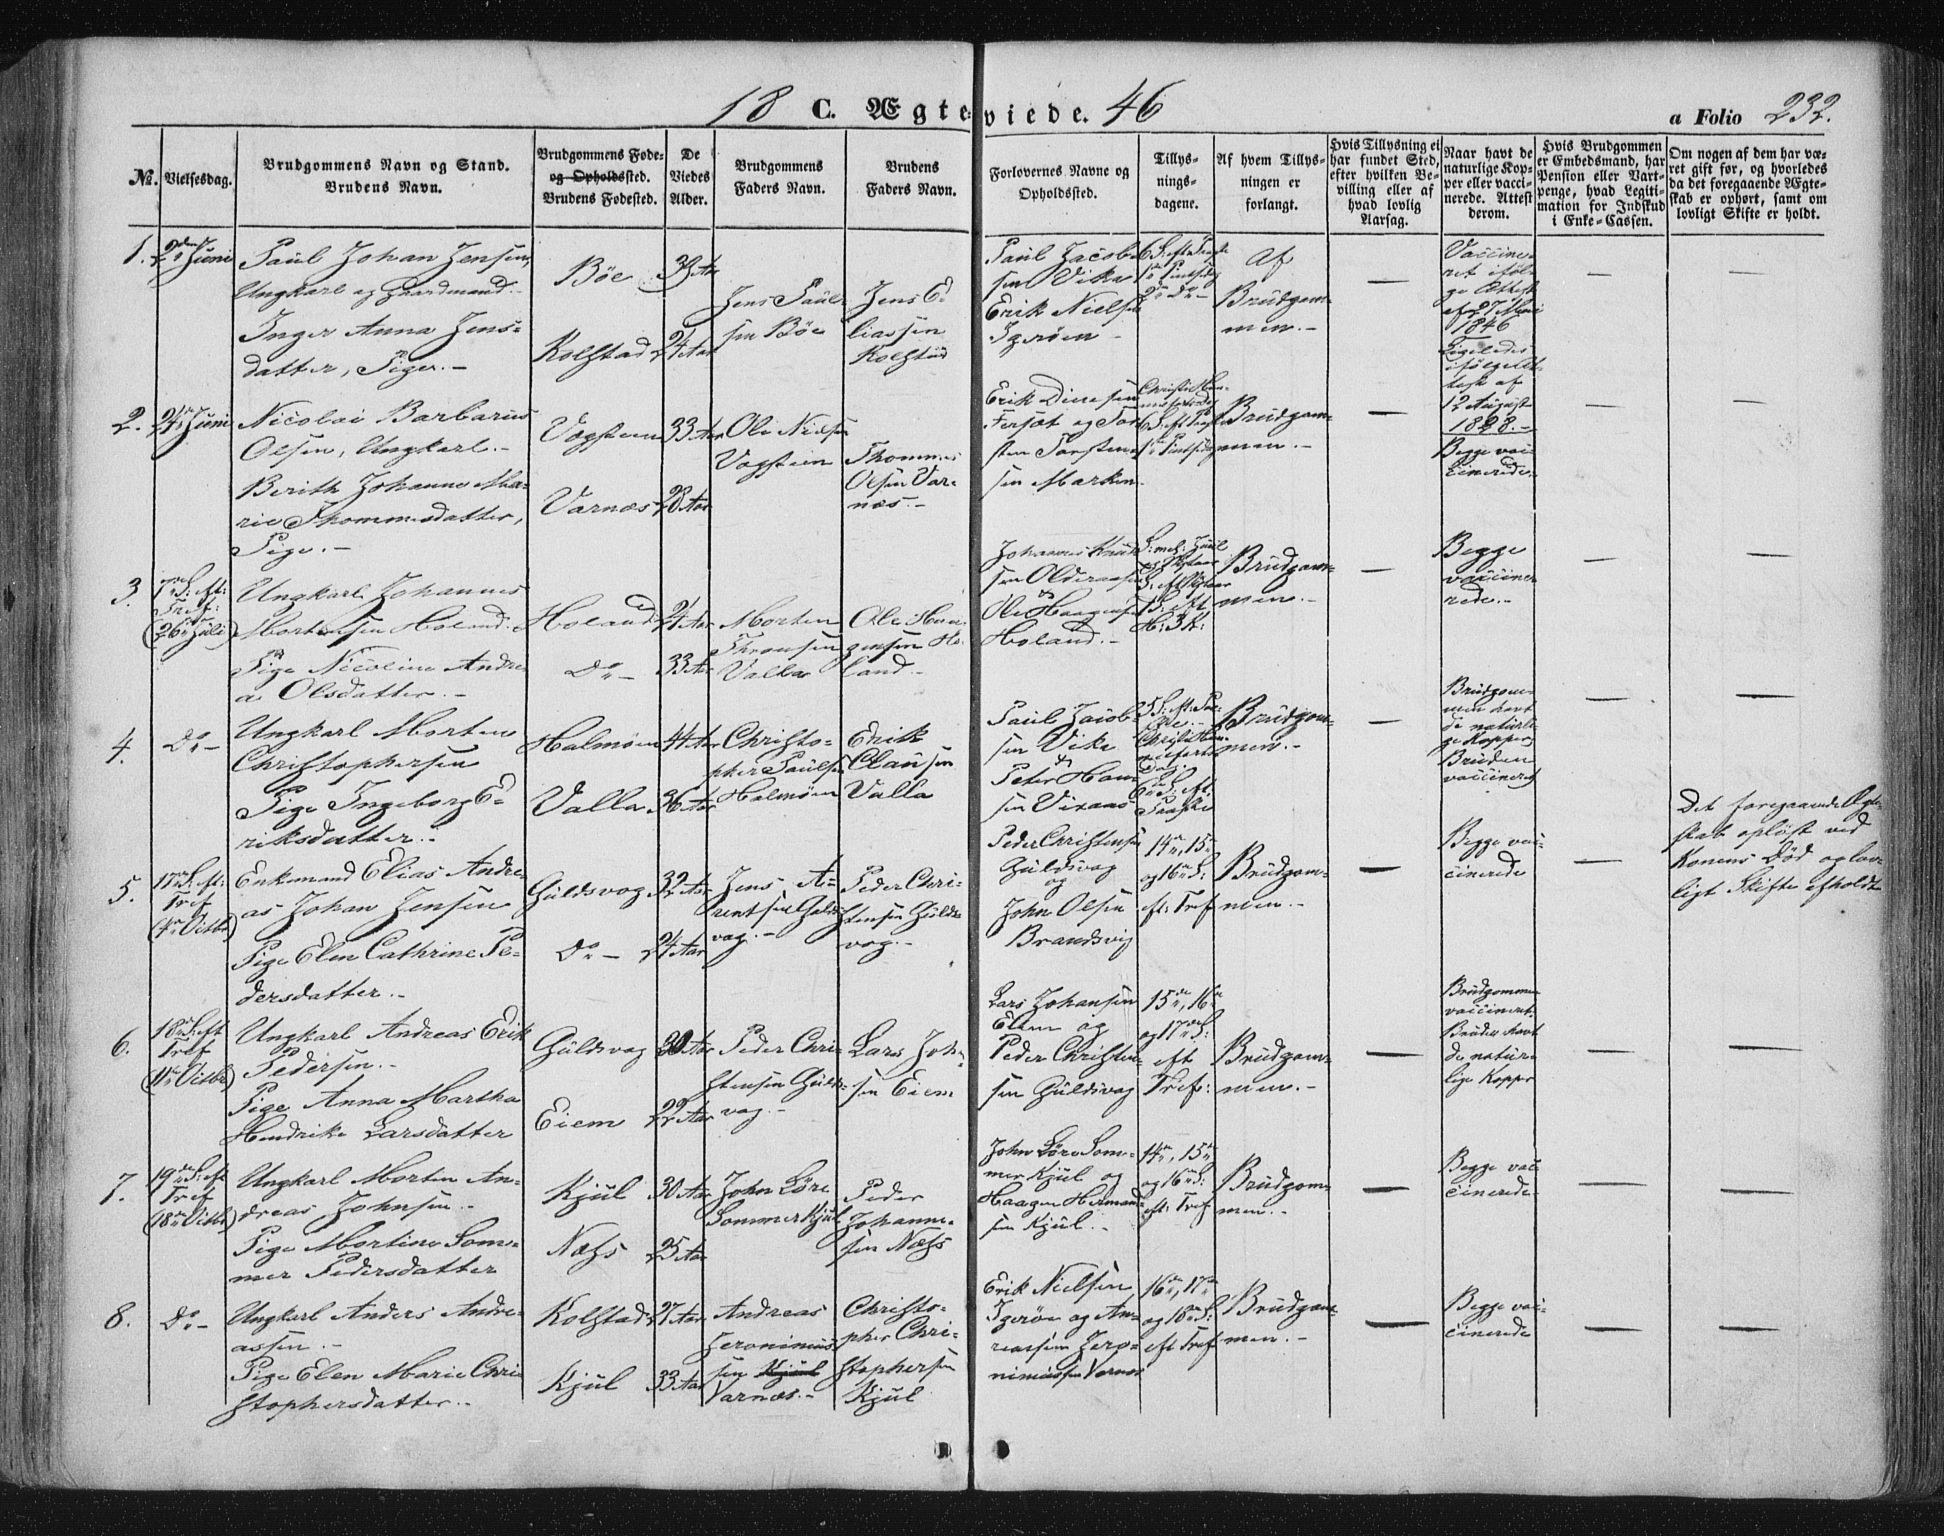 18 C. Ægteviede. 46
a Folio 232.
No.
Vielsesdag.
Brudgommens Navn og Stand.
Brudens Navn.
Brudgommens Føde-
og Opholdssted.
Brudens Fødested.
De
Viedes
Alder.
Brudgommens
Faders Navn.
Brudens
Faders Navn.
Forlovernes Navne og
Opholdssted.
Tillys-
nings-
dagene.
Af hvem Tillys-
ningen er
forlangt.
Hvis Tillysning ei
har fundet Sted,
efter hvilken Be-
villing eller af
hvad lovlig
Aarsag.
Naar havt de
naturlige Kop-
per eller vacci-
nerede. Attest
derom.
Hvis Brudgommen
er Embedsmand, har
Pension eller Vart-
penge, hvad Legiti-
mation for Indskud
i Enke-Cassen.
Om nogen af dem har væ-
ret gift før, og hvorledes
da det foregaaende Ægte-
skab er ophørt, samt om
lovligt Skifte er holdt.
1.
2den Juni
Paul Johan Jensen,
Ungkarl og Gaardmand.-
Inger Anna Jens-
datter, Pige.-
Bøe
Kolstad
33 Aar
24 Aar
Jens Pauls-
sen Bøe
Jens E-
liassen
Kolstad
Paul Jacob-
sen Vika
Erik Niels
Igerøen
Af
Brudgom-
men.-
—
Vaccine-
ret iføl-
ge Attest
af 27 Mai
1846
Ligeledes
ifølge At-
test af
12 August
1828.-
—
—
2.
24de Juni
Nicolai Barbarus
Olsen, Ungkarl.-
Berith Johanne Ma-
rie Thommesdatter,
Pige.-
Vegsteen
Varnæs
33 Aar
28 Aar
Ole Nielsen
Vagstein
Thommes
Olsen Var-
næs.-
Erik Dinesen
Forsæt og Tor-
sten Torstens-
sen Marken
Brudgom-
men.-
—
Begge vac-
cinerede
—
—
3.
7de S: eft:
Tref:
(26de Juli)
Ungkarl Johannes
Mortensen Holand.
Pige Nicoline Andre-
a Olsdatter.-
Holand
Do -
24 Aar
33 Aar
Morten
Thronsen
Valla
Ole Haa-
gensen Ho-
land.-
Johannes Knud-
sen Olderaasen
&
Ole Haagensen
Holand.-
Brudgom-
men.-
—
Begge
vaccine-
rede.-
—
—
4.
Do -
Ungkarl Morten
Christophersen
Pige Ingeborg E-
riksdatter.-
Halmøen
Valla
44 Aar
36 Aar
Christo-
pher Paulsen
Halmøen
Erik
Clausen
Valla
Paul Jacob-
sen Vike
&
Peter Han-
sen Viraas
Brudgom-
men.-
—
Brudgom-
men havt
de naturli-
ge Kopper
Bruden
vaccineret
—
—
5.
17de S: eft:
Tref
(4de Octbr)
Enkemand Elias Andre-
as Johan Jensen
Pige Elen Cathrine Pe-
dersdatter.-
Guldsvog
Do -
32 Aar
24 Aar
Jens A-
rentsen Gulds-
vag.-
Peder Chri-
stensen Gulds-
vog.-
Peder Christensen
Guldsvag
og
John Olsen
Brandsvig
14de, 15de
og 16de S:
eft: Tref
Brudgom-
men.-
—
Begge vac-
cinerede
—
Det foregaaende Ægte-
skab opløst ved
Konens Død og lov-
ligt Skifte afholdt
6.
18de S: eft
Tref
(11te Octbr)
Ungkarl Andreas Erik
Pedersen.-
Pige Anna Martha
Hendrike Larsdatter
Guldsvog
Eiem
20 Aar
22 Aar
Peder Chri-
stensen Gulds-
vag.-
Lars Joh-
sen Eiem
Lars Johansen
Eiem og
Peder Christen-
sen Guldsvag
15de, 16de
og 17de S:
eft
Tref:
Brudgom-
men.-
—
Brudgommen
vaccineret.
Bruden havt
de natur-
lige Kopper
—
—
7.
19de S: eft
Tref
(18de Octbr)
Ungkarl Morten An-
dreas Johnsen.-
Pige Martine Som-
mer Pedersdatter
Kjul
Næss
30 Aar
25 Aar
John Løre
Sommer Kjul
Peder
Johanne-
sen Næss
John Løre Som-
mer Kjul og
Haagen Hermand-
sen Kjul.-
14de, 15de
og 16de S.
eft: Tref
Brudgom-
men.-
—
Begge vac-
cinerede
—
—
8.
Do -
Ungkarl Anders Andre-
assen.-
Pige Elen Marie Chri-
stophersdatter.-
Kolstad
Kjul
27 Aar
33 Aar
Andreas
Jeronimus-
sen Kjul
Varnæs.-
Christo-
pher Chri-
stophersen
Kjul
Erik Nielsen
Igerøen og An-
reassen Jero-
nimussen Varnæs
16de, 17de
og 18de S.
eft Tref
Brudgom-
men.-
—
Begge vac-
cinerede
—
—